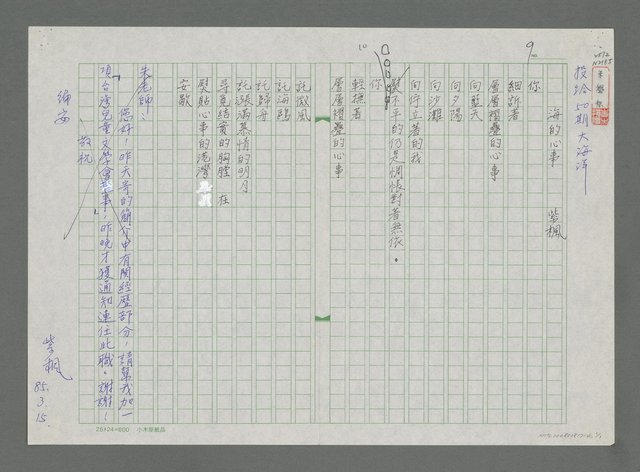 投給50期大海洋
海的心事 紫楓
你
細訴著
層層摺疊的心事
向藍天
向夕陽
向沙灘
向佇立著的我
熨不平的仍是惆悵對著無依。
你
輕撫著
層層摺疊的心事
託微風
託海鷗
託歸舟
託漲滿慕情的明月
尋覓結實的胸膛 在
熨貼心事的港灣
安歇
朱老師：
您好！昨天寄的簡介中有關經歷部分，請幫我加一
項「台灣兒童文學會監事」，昨晚才獲通知連任此職。謝謝！
敬祝
編安
紫楓
85.
3.
15.
9
10
25×24=600 小木屋紙品